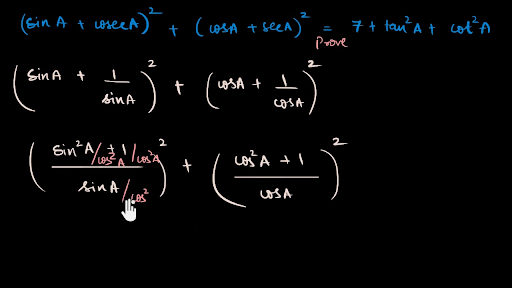 (sinA + cosecA)² + (cosA + secA)² = 7 + tan²A + cot²A
Prove
(sinA + 1/sinA)² + (cosA + 1/cosA)²
(sin²A/cos²A + 1/cos²A / sinA/cos²)² + (cos²A + 1 / cosA)²